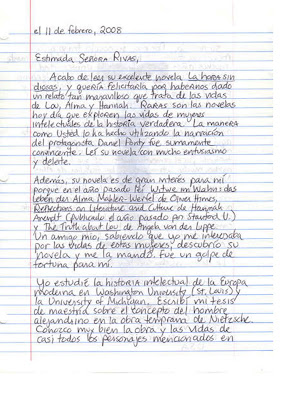 el 11 de febrero, 2008
Estimada SEÑORA RIVAS,
Acabo de leer su excelente novela La hora sin
diosas, y quería felicitarla por habernos dado
un relato tan maravilloso que trata de las vidas
de Lou, Alma y Hannah. RARAS son las novelas
hoy día que exploren las vidas de mujeres
intelectuales de la historia verdadera. La manera
como Usted lo ha hecho utilizando la narración
del protagonista Daniel Ponty fue sumamente
convincente. Leí su novela con mucho entusiasmo
y deleite.
Además, su novela es de gran interés para mí
porque en el año pasado leí Witwe im Wahn: das
leben der Alma Mahler-Werfel de Oliver Hilmes,
Reflections on Literature and Culture de Hannah
Arendt (publicado el año pasado por Stanford U.)
y The Truth about Lou, de Angela von der Lippe.
Un amigo mío, sabiendo que yo me interesaba
por las vidas de estas mujeres, descubrió su
novela y me la mandó. Fue un golpe de
fortuna para mí.
Yo estudié la historia intelectual de la Europa
moderna en Washington University (St. Louis) y
la University of Michigan. Escribí mi tesis
de maestría sobre el concepto del hombre
alejandrino en la obra temprana de Nietzsche.
Conozco muy bien la obra y las vidas de
casi todos los personajes mencionados en